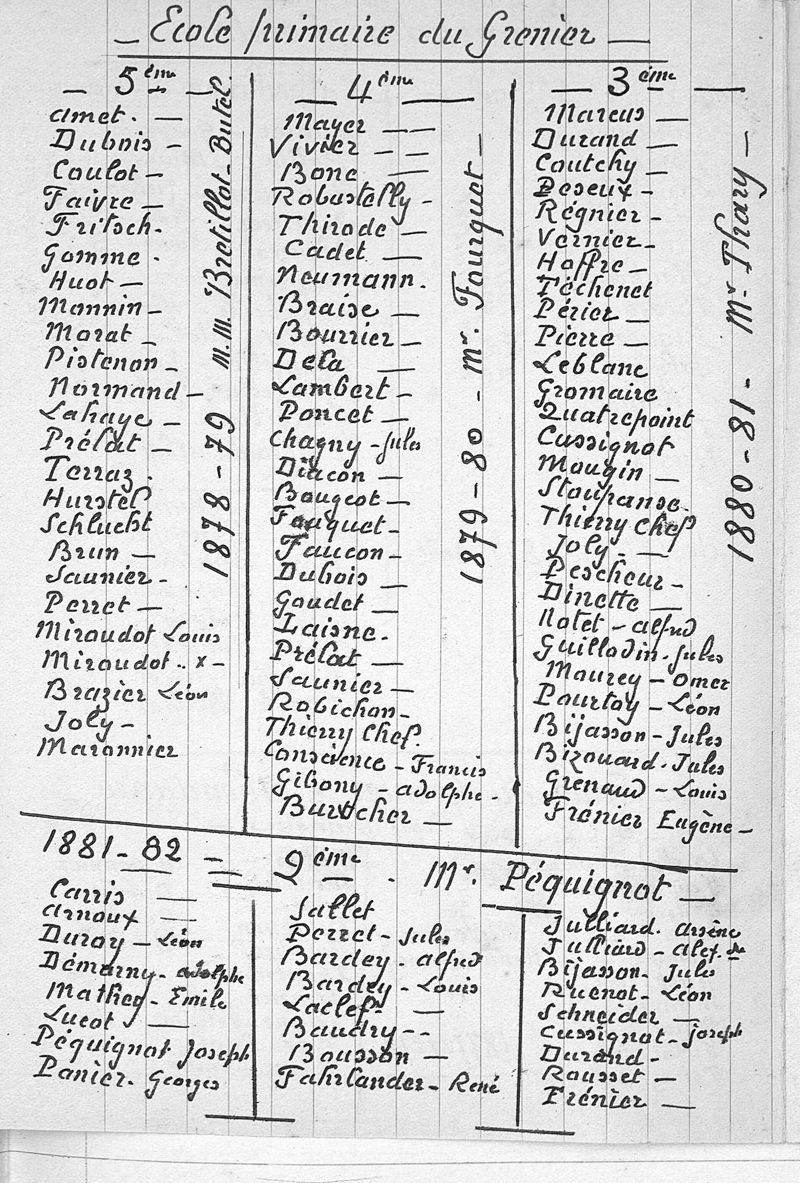 Ecole primaire du Grenier
5ème
Amet.
Dubois
Coulot
Faivre
Fritsch.
Gomme.
Huot
Monnin
Morat
Pistenon
Normand
Lahaye
Prélat
Terraz.
Hurstel
Schlucht
Brun
Saunier
Perret
Miroudot Louis
Miroudot .. x
Brazier Léon
Joly
Maronnier
1878-79 M.M. Bretillot-Butel.
4ème
Mayer
Vivier
Bonc
Robustelly
Thirode
Cadet
Neumann.
Braise
Bourrier
Dela
Lambert
Poncet
Chagny - Jules
Diacon
Bougeot
Fouquet
Faucon
Dubois
Goudet
Laisne.
Prélat
Saunier
Robichon
Thierry Chef.
Conscience - Francis
Gibony - Adolphe
Burtcher
1879-80 - Mr. Fourquet
3ème
Marcus
Durand
Coutchy
Deseux
Régnier
Vernier
Hoffre
Téchenet
Périer
Pierre
Leblanc
Gromaire
Quatrepoint
Cussignot
Mougin
Stoupanse.
Thierry Chef
Joly.
Pescheur
Dinette
Notet - Alfred
Guillodin. Jules
Maurey - Omer
Pourtoy - Léon
Bijasson - Jules
Bizouard. Jules
Grenaud - Louis
Frénier Eugène
1880-81 - Mr Thary
1881-82 - 2ème . Mr. Péquignot
Carris
Arnoux
Duray - Léon
Démarny. Adolphe
Mathey - Emile
Lucot
Péquignot Joseph
Panier. Georges
Sallet
Perret - Jules
Bardey. Alfred
Bardey - Louis
Laclef
Baudry
Bousson
Fahrlander - René
Julliard. Arsène
Julliard - Alex.dre
Bijasson - Jules
Ruenot - Léon
Schneider
Cussignot - Joseph
Durand
Rousset
Frénier